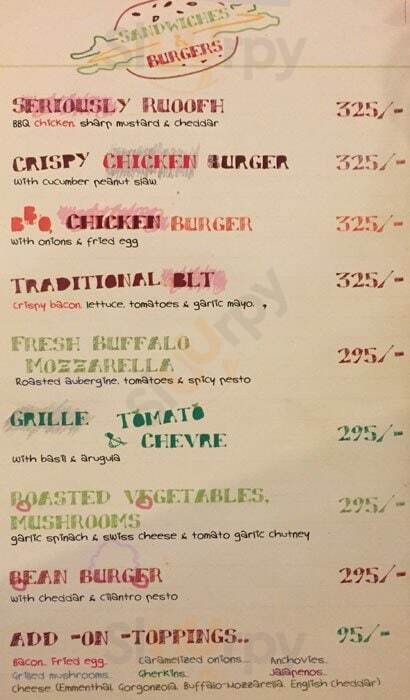 SANDWICHES
&
BURGERS
SERIOUSLY RUOOFH 325/-
BBQ chicken, sharp mustard & cheddar
CRISPY CHICKEN BURGER 325/-
with cucumber peanut slaw
BBQ CHICKEN BURGER 325/-
with onions & fried egg
TRADITIONAL BLT 325/-
crispy bacon, lettuce, tomatoes & garlic mayo.
FRESH BUFFALO
MOZZARELLA 295/-
Roasted aubergine, tomatoes & spicy pesto
GRILLE TOMATO
& CHEVRE 295/-
with basil & arugula
ROASTED VEGETABLES, 295/-
MUSHROOMS
garlic spinach & swiss cheese & tomato garlic chutney
BEAN BURGER 295/-
with cheddar & cilantro pesto
ADD -ON -TOPPINGS.. 95/-
Bacon, Fried egg.. Caramelized onions... Anchovies..
Grilled mushrooms. Gherkins.. Jalapenos..
Cheese (Emmenthal, Gorgonzola, Buffalo Mozzarella, English Cheddar)